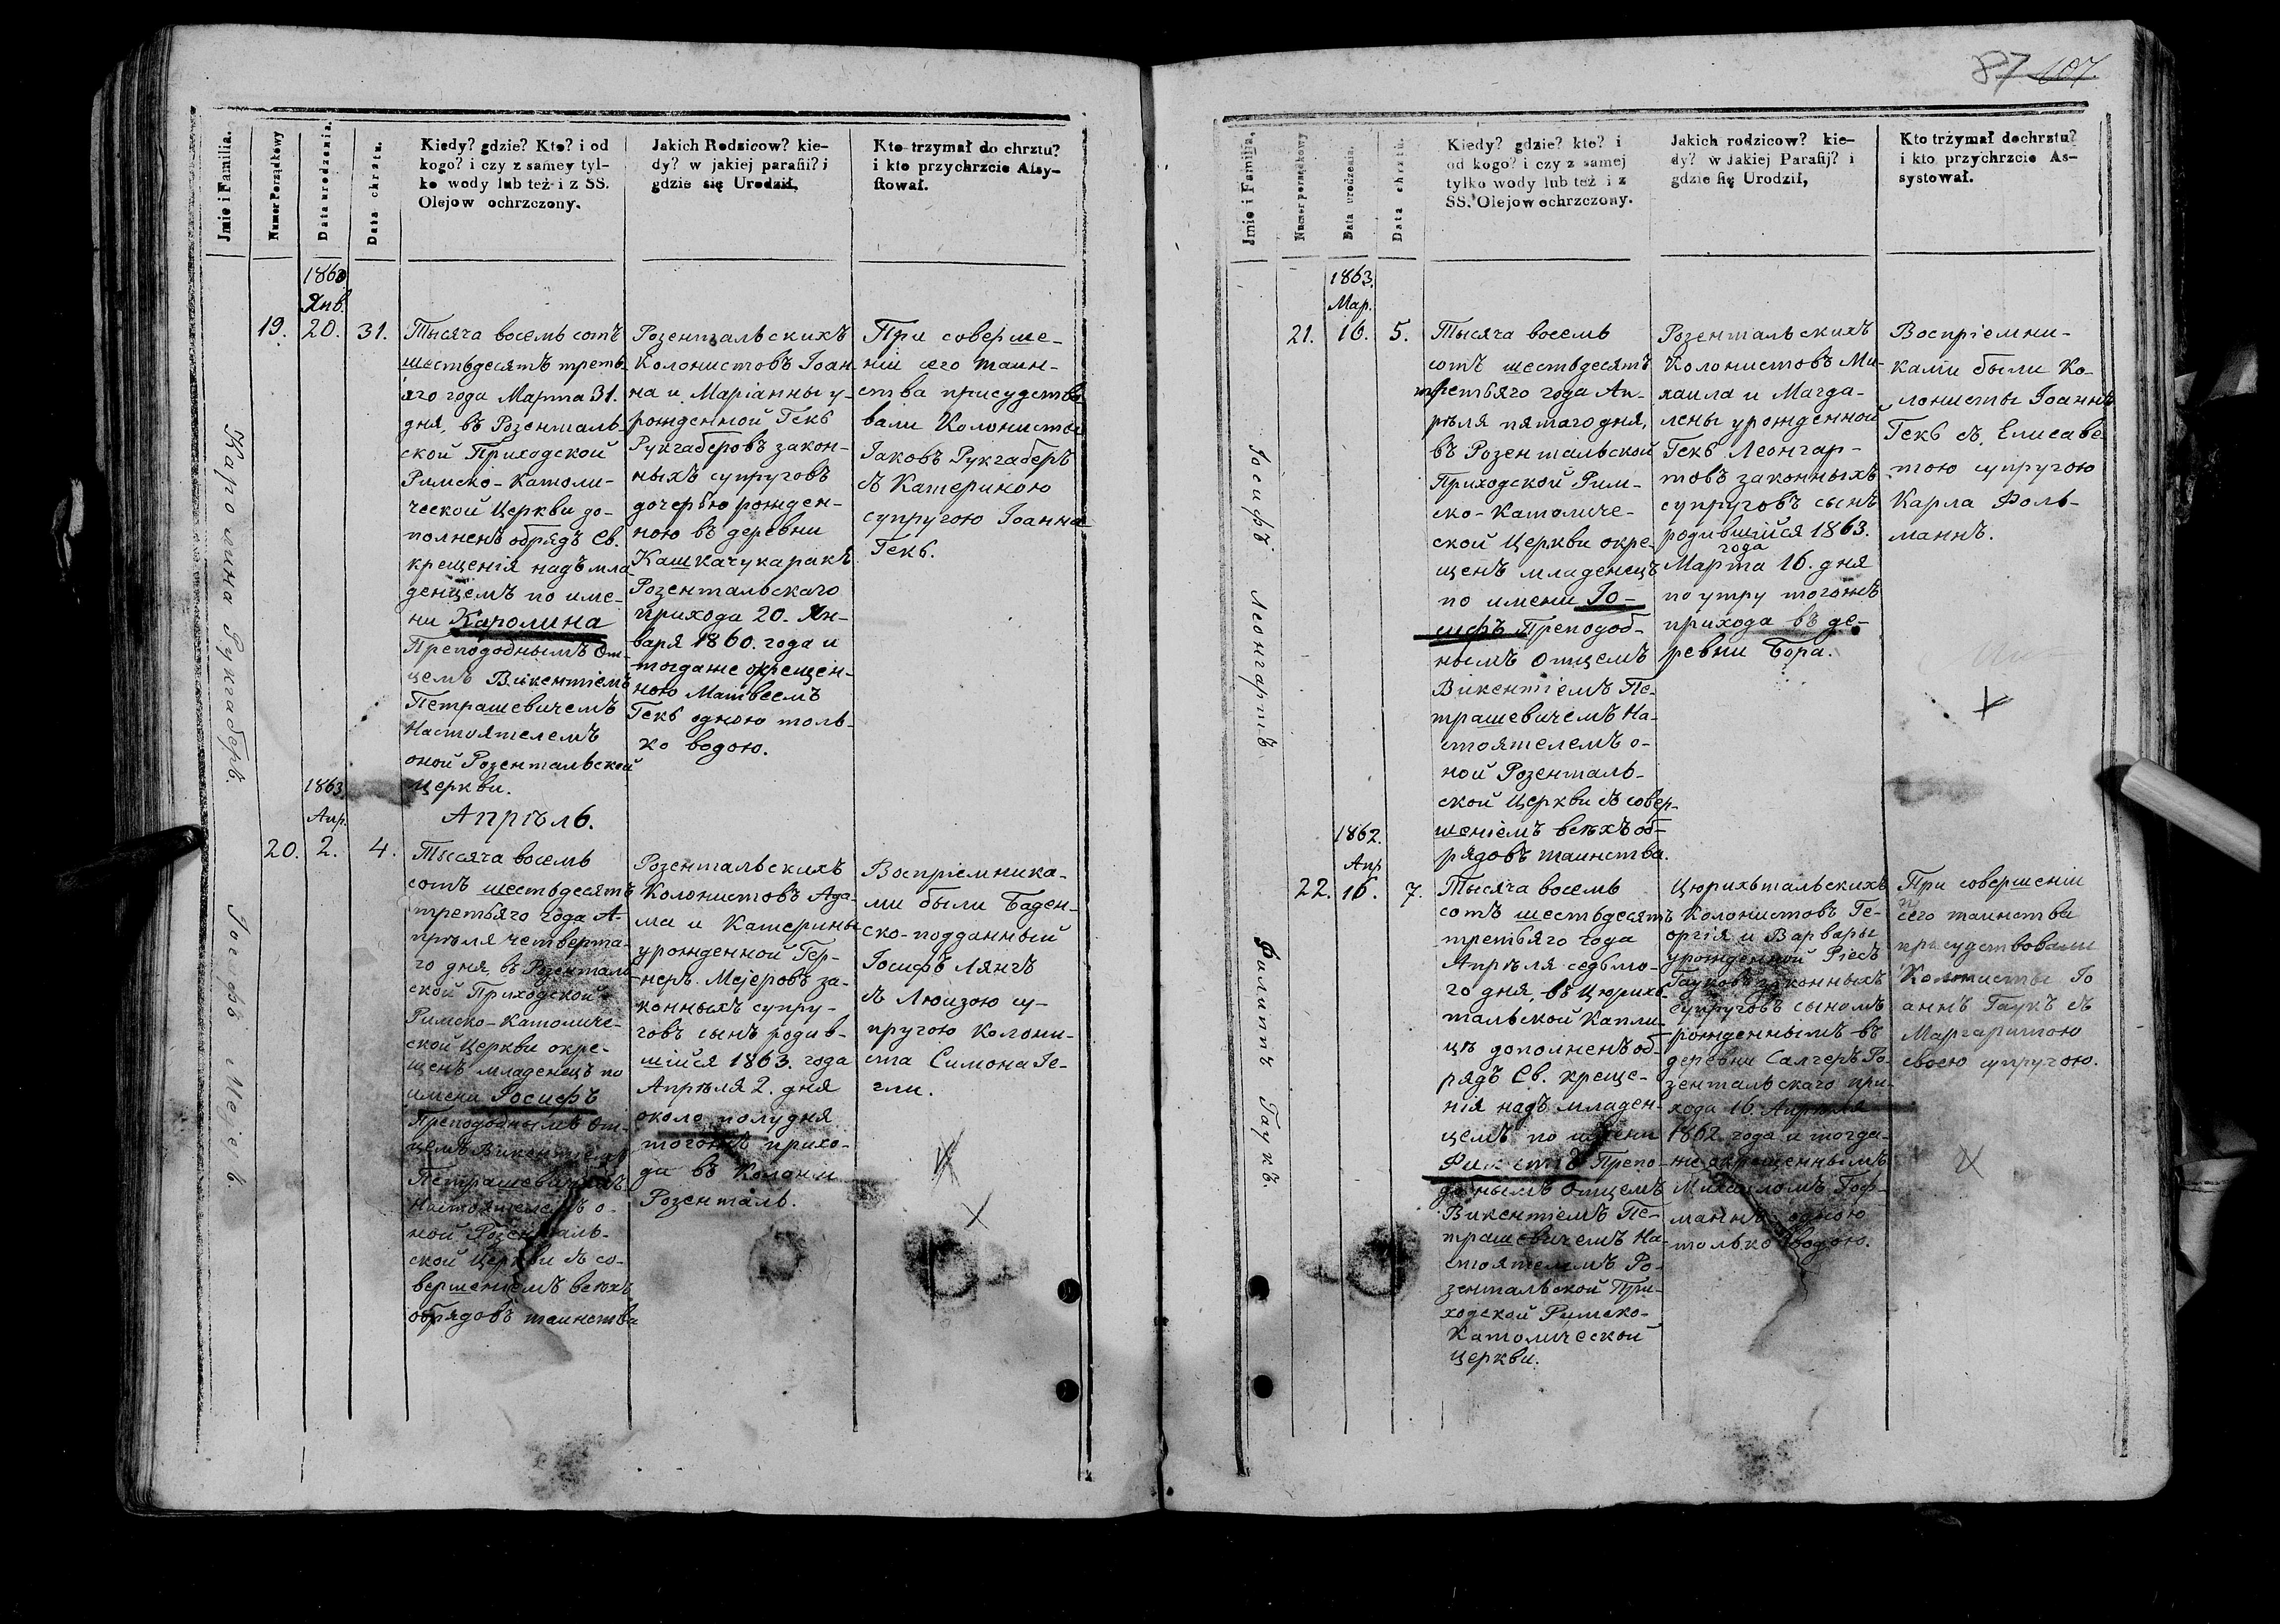 87 107.
Jmie i Familia.
Numer Porządkowy
Data urodzenia.
Data chrztu.
Kiedy? gdzie? Kto? i od
kogo? i czy z samey tyl-
ko wody lub też i z SS.
Olejow ochrzczony.
Jakich Rodzicow? kie-
dy? w jakiej parafii? i
gdzie się Urodził,
Kto trzymał do chrztu?
i kto przychrzcie Assy-
stował.
Каролина Рукгаберъ.
1860
Янв.
19. 20. 31.
Тысяча восемь сотъ
шестьдесятъ треть-
яго года Марта 31.
дня, въ Розенталь-
ской Приходской
Римско-Католи-
ческой Церкви до-
полненъ обрядъ Св.
крещенія надъ мла-
денцемъ по име-
ни Каролина
Преподобнымъ От-
цемъ Викентіемъ
Петрашевичемъ
Настоятелемъ
оной Розентальской
Церкви.
Розентальскихъ
Колонистовъ Іоан-
на и Маріанны у-
рожденной Гекъ
Рукгаберовъ закон-
ныхъ супруговъ
дочерью рожден-
ною въ деревни
Кашкачукаракъ
Розентальскаго
прихода 20. Ян-
варя 1860. года и
тогдаже окрещен-
ною Матвеемъ
Гекъ одною толь-
ко водою.
При соверше-
ніи сего таин-
ства присудство-
вали Колонисты
Іаковъ Рукгаберъ
съ Катериною
супругою Іоанна
Гекъ.
Іосифъ Меjеръ.
1863
Апр.
Апрѣль.
20. 2. 4.
Тысяча восемь
сотъ шестьдесятъ
третьяго года А-
прѣля четверта-
го дня, въ Розенталь-
ской Приходской
Римско-Католиче-
ской Церкви окре-
щенъ младенецъ по
имени Іосифъ
Преподобнымъ От-
цемъ Викентіемъ
Петрашевичемъ
Настоятелемъ о-
ной Розенталь-
ской Церкви съ со-
вершеніемъ всѣхъ
обрядовъ таинства
Розентальскихъ
Колонистовъ Ада-
ма и Катерины
урожденной Гер-
неръ. Меjеровъ за-
конныхъ супру-
говъ сынъ родив-
шійся 1863. года
Апрѣля 2. дня
около полудня
тогожъ прихо-
да въ Колоніи
Розенталь.
Воспріемника-
ми были Баден-
ско-подданный
Іосифъ Лянгъ
съ Люизою су-
пругою Колони-
ста Симона Ге-
гли.
Jmie i Familia.
Numer porządkowy
Data urodzenia.
Data chrztu.
Kiedy? gdzie? kto? i
od kogo? i czy z samej
tylko wody lub też i z
SS. Olejow ochrzczony.
Jakich rodzicow? kie-
dy? w Jakiej Parafij? i
gdzie się Urodził,
Kto trżymał dochrztu?
i kto przychrzcie As-
systował.
Іосифъ Леонгартъ
1863.
Мар.
21. 16. 5.
Тысяча восемь
сотъ шестьдесятъ
третьяго года Ап-
рѣля пятаго дня,
въ Розентальской
Приходской Рим-
ско-Католиче-
ской Церкви окре-
щенъ младенецъ
по имени Іо-
сифъ Преподоб-
нымъ Отцемъ
Викентіемъ Пе-
трашевичемъ На-
стоятелемъ о-
ной Розенталь-
ской Церкви съ совер-
шеніемъ всѣхъ об-
рядовъ таинства.
Розентальскихъ
Колонистовъ Ми-
хаила и Магда-
лены урожденной
Гекъ Леонгар-
товъ законныхъ
супруговъ сынъ
родившійся 1863.
года
Марта 16. дня
по утру тогожъ
прихода въ де-
ревни Бора.
Воспріемни-
ками были Ко-
лонисты Іоаннъ
Гекъ съ Елисаве-
тою супругою
Карла Фоль-
маннъ.
Филиппъ Гаукъ.
1862.
Апр
22. 16. 7.
Тысяча восемь
сотъ шестьдесятъ
третьяго года
Апрѣля седьмо-
го дня, въ Цюрихъ-
тальской Капли-
цѣ дополненъ об-
рядъ Св. креще-
нія надъ младен-
цемъ по имени
Филиппъ Препо-
добнымъ Отцемъ
Викентіемъ Пе-
трашевичемъ На-
стоятелемъ Ро-
зентальской При-
ходской Римско-
Католической
Церкви.
Цюрихтальскихъ
Колонистовъ Ге-
оргія и Варвары
урожденной Ріесъ
Гауковъ законныхъ
супруговъ сыномъ
рожденнымъ въ
деревни Салгеръ Ро-
зентальскаго при-
хода 16. Апрѣля
1862. года и тогда-
же окрещеннымъ
Михаиломъ Гоф-
маннъ одною
только водою.
При совершеніи
сего таинства
присудствовали
Колонисты Іо-
аннъ Гаукъ съ
Маргаритою
своею супругою.